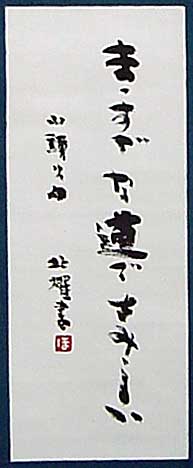 まっすぐな道でさみしい
山頭火句
北燿書
ほ